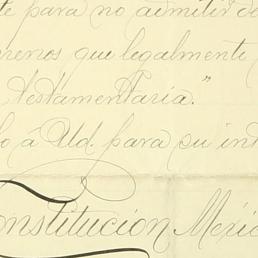 te para no admitir
menos que legalmente
testamentaria."
á Ud. para su
Constitucion